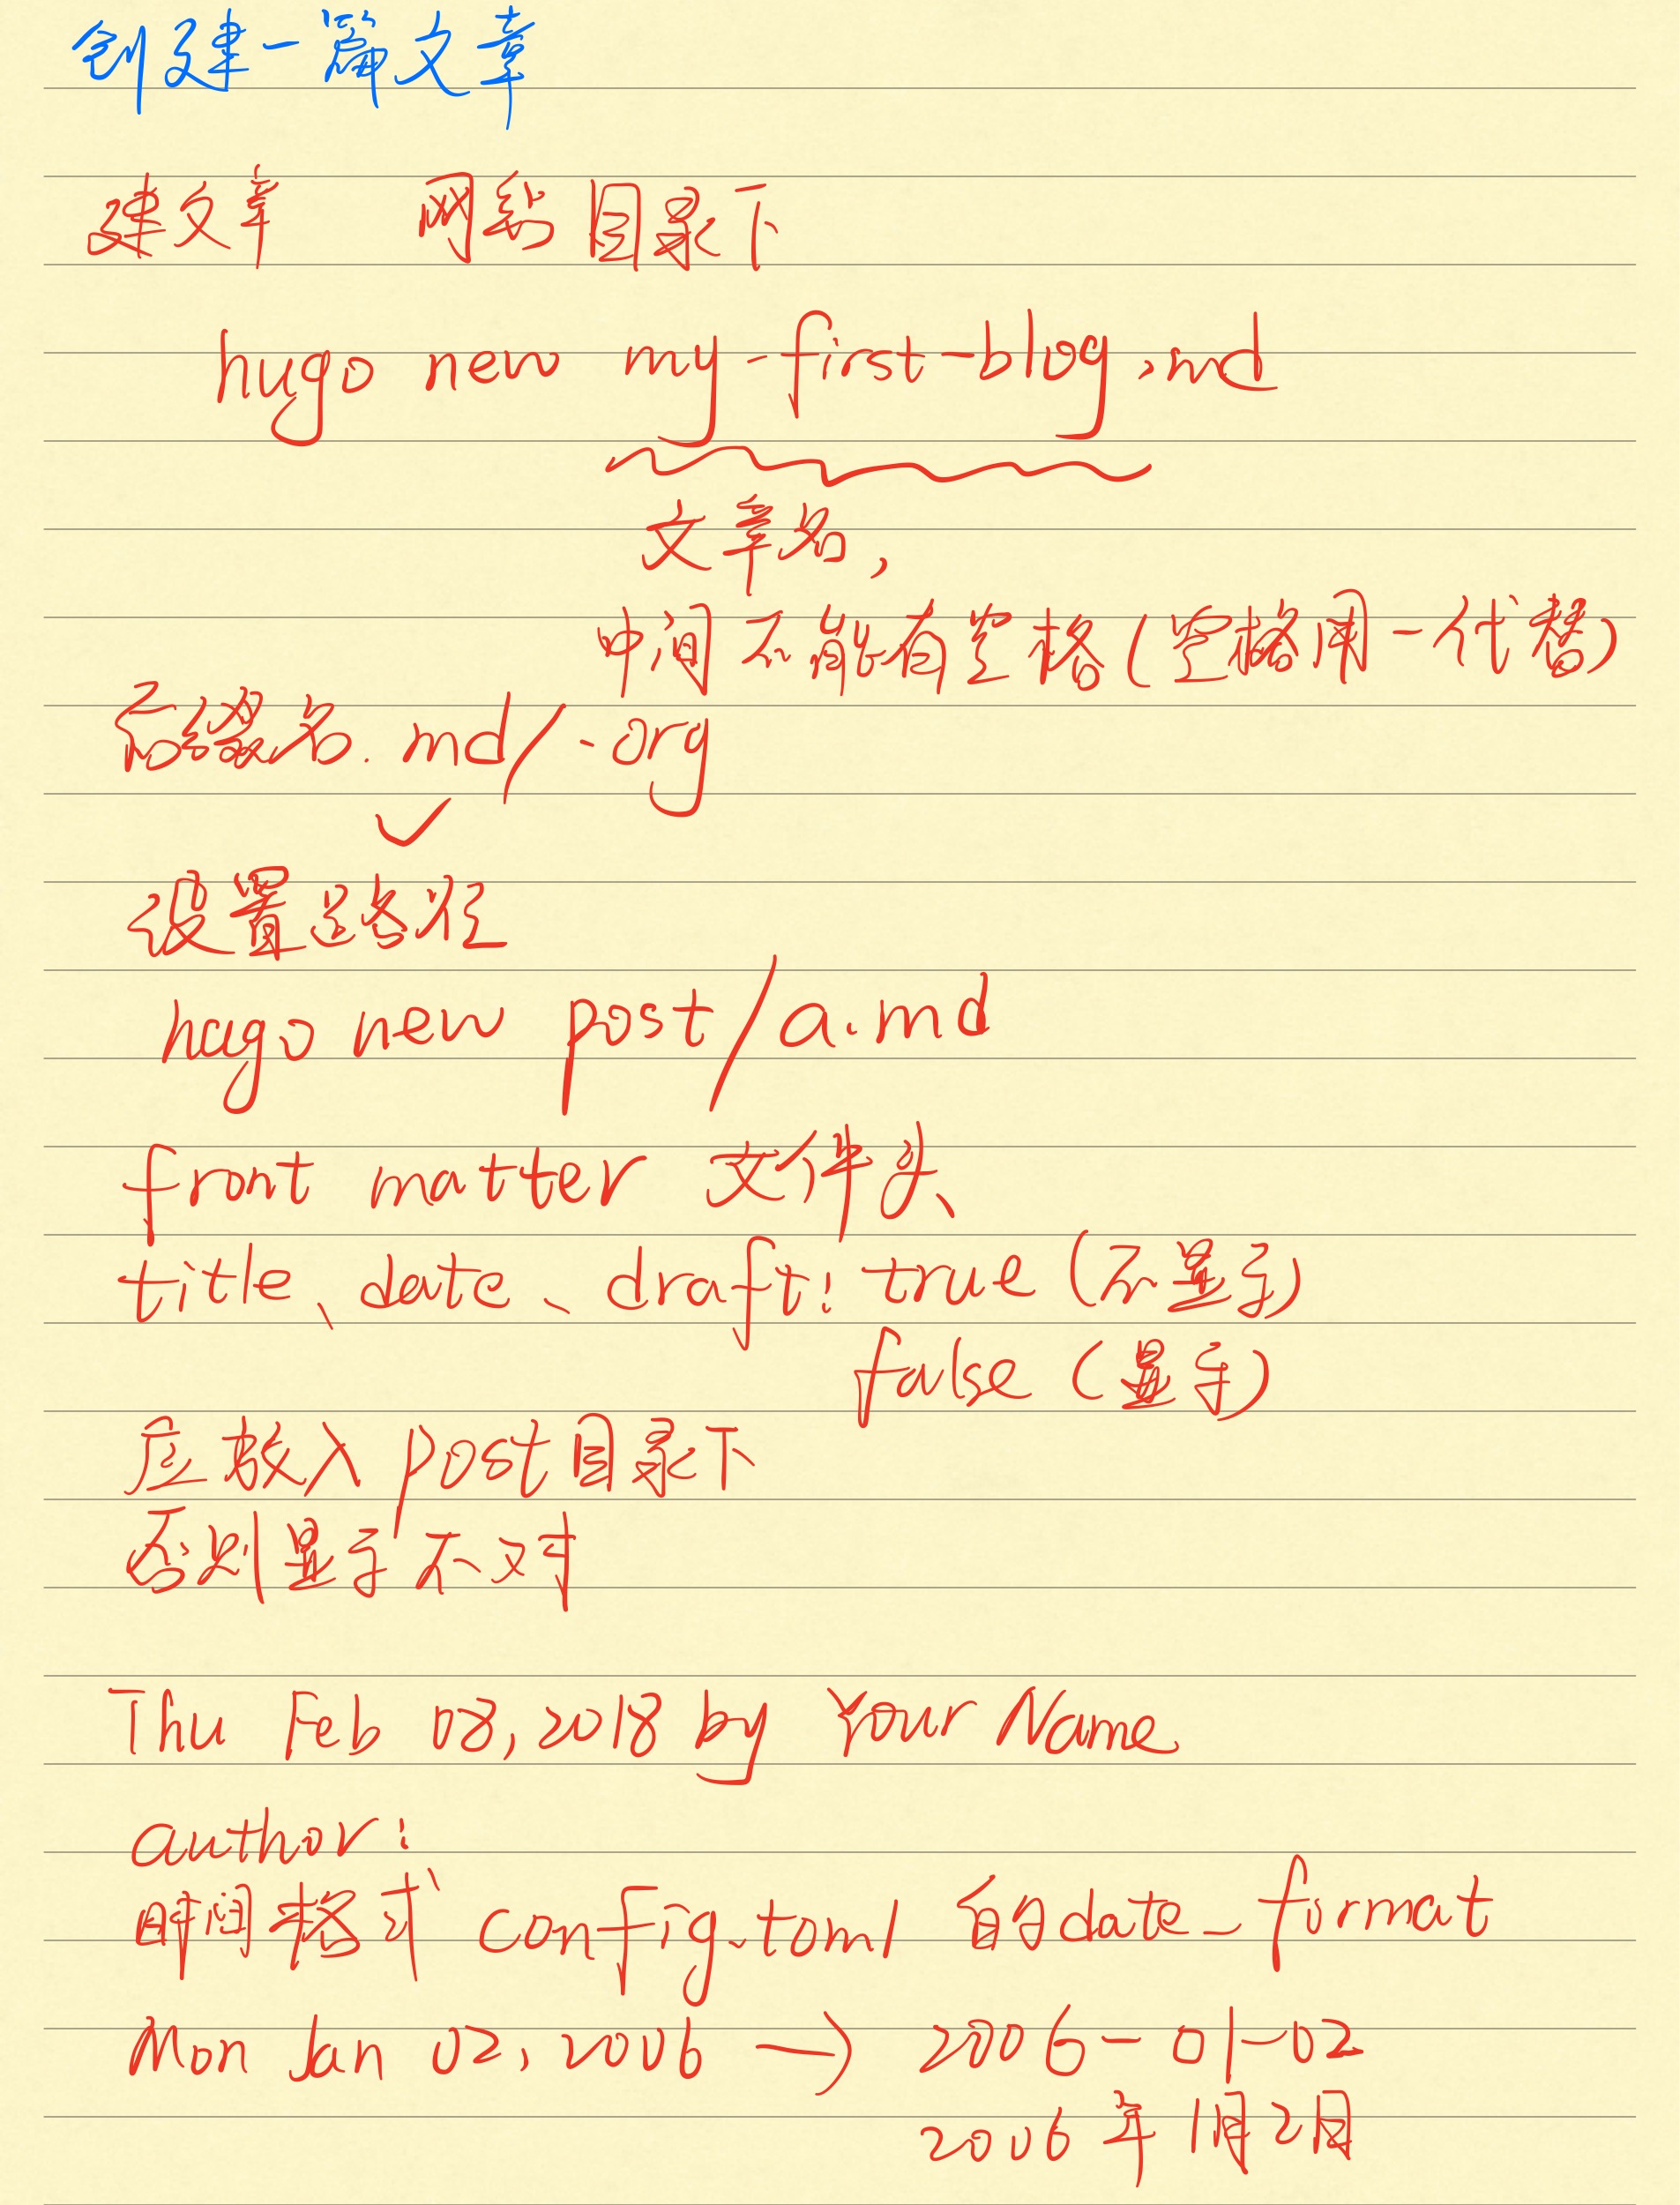 创建一篇文章
建文章 网站目录下
hugo new my-first-blog.md
文章名,
中间不能有空格(空格用-代替)
后缀名.md/.org
✓
设置路径
hugo new post/a.md
front matter 文件头
title、date、draft: true (不显示)
false (显示)
应放入post目录下
否则显示不对
Thu Feb 08, 2018 by Your Name
author:
时间格式 config.toml 的date_format
Mon Jan 02, 2006 → 2006-01-02
2006年1月2日